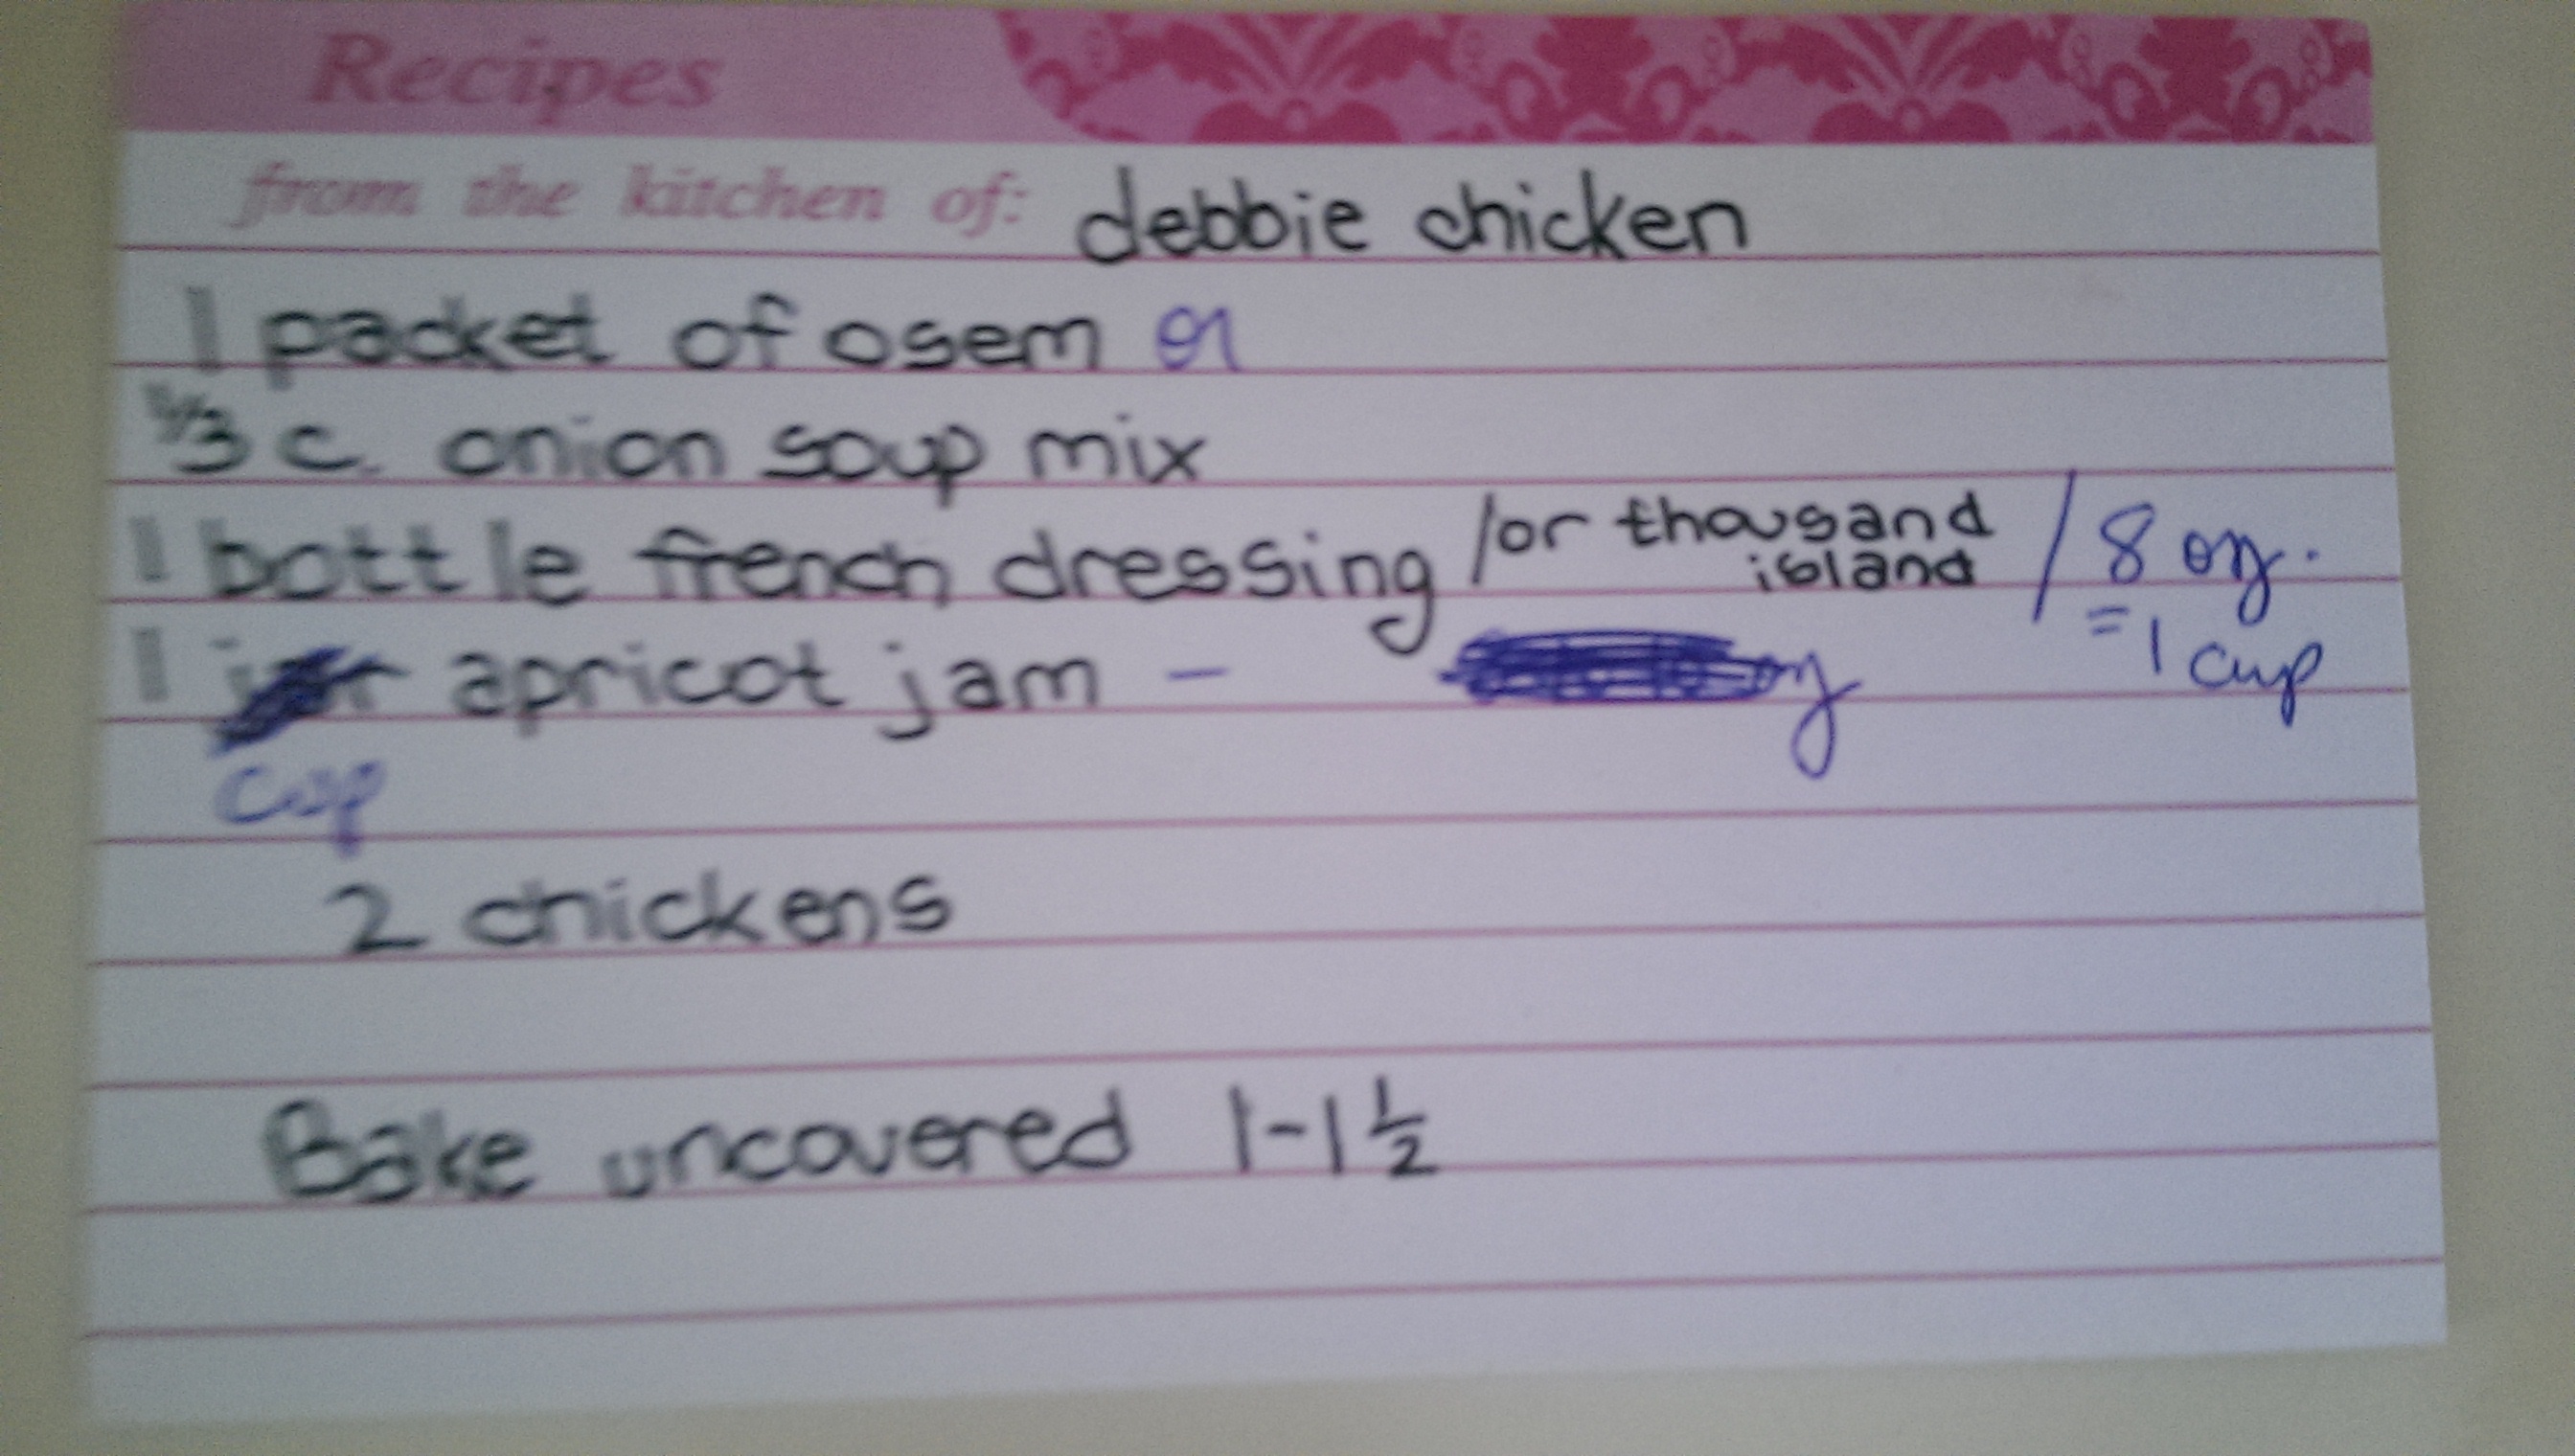 Recipes
from the kitchen of: debbie chicken
1 packet of osem or
1/3 c. onion soup mix
1 bottle french dressing /or thousand island / 8 oz.
= 1 cup
1 apricot jam -
cup
2 chickens
Bake uncovered 1-1 1/2